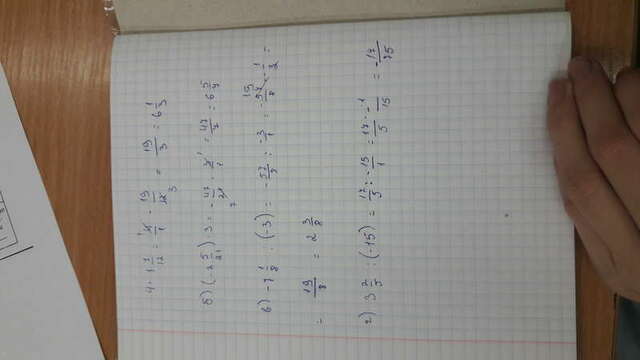 4 · 1 7/12 = 4/1 · 19/12 = 19/3 = 6 1/3
б) (-2 5/21) · 3 = -47/21 · 3/1 = 47/7 = 6 5/7
в) -7 1/8 : (-3) = -57/8 : -3/1 = -57/8 · -1/3 =
= 19/8 = 2 3/8
г) 3 2/5 : (-15) = 17/5 : -15/1 = 17/5 · -1/15 = -17/75